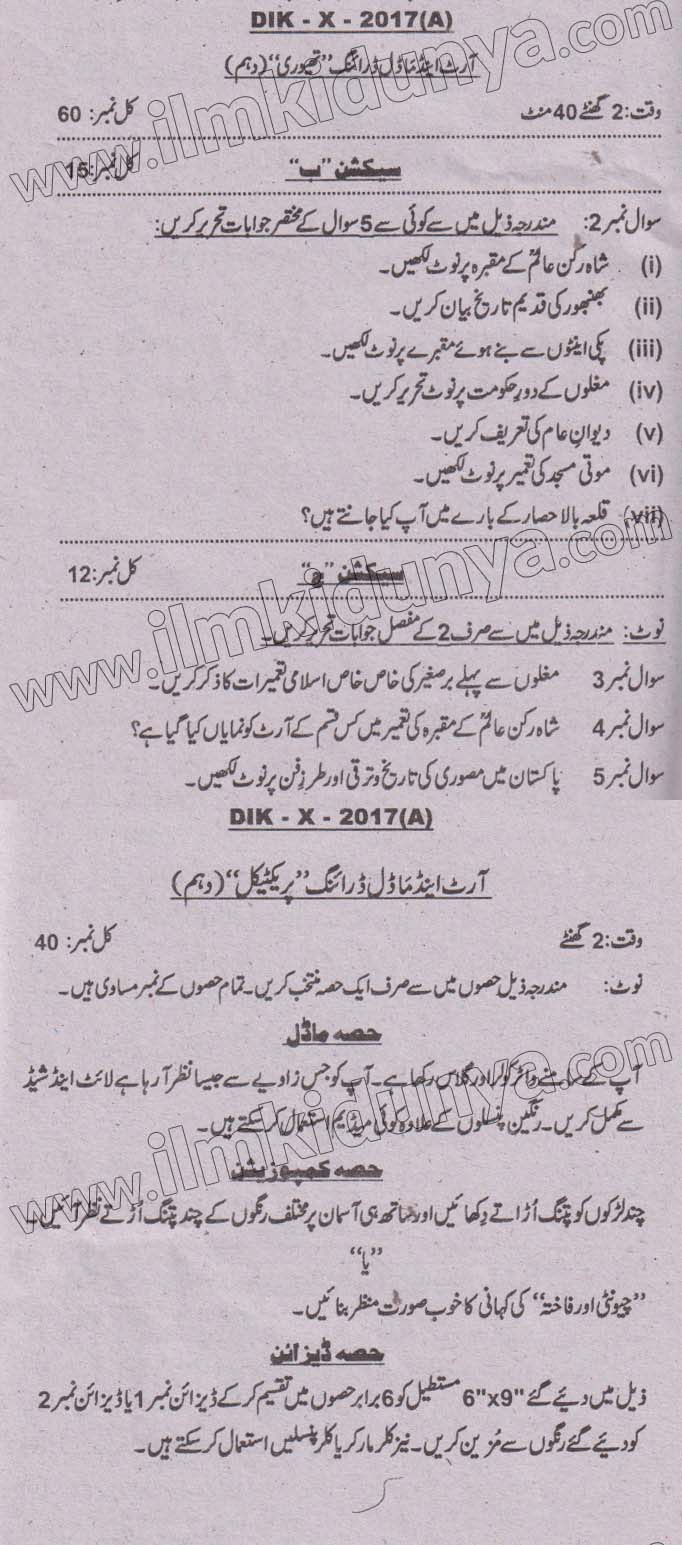 DIK - X - 2017(A)
آرٹ اینڈ ماڈل ڈرائنگ ”تھیوری“ (دہم)
وقت: 2 گھنٹے 40 منٹ کل نمبر: 60
سیکشن ”ب“ کل نمبر: 15
سوال نمبر 2: مندرجہ ذیل میں سے کوئی سے 5 سوال کے مختصر جوابات تحریر کریں:
(i) شاہ رکن عالمؒ کے مقبرہ پر نوٹ لکھیں۔
(ii) بھنبھور کی قدیم تاریخ بیان کریں۔
(iii) پکی اینٹوں سے بنے ہوئے مقبرے پر نوٹ لکھیں۔
(iv) مغلوں کے دورِ حکومت پر نوٹ تحریر کریں۔
(v) دیوانِ عام کی تعریف کریں۔
(vi) موتی مسجد کی تعمیر پر نوٹ لکھیں۔
(vii) قلعہ بالا حصار کے بارے میں آپ کیا جانتے ہیں؟
سیکشن ”ج“ کل نمبر: 12
نوٹ: مندرجہ ذیل میں سے صرف 2 کے مفصل جوابات تحریر کریں۔
سوال نمبر 3 مغلوں سے پہلے برصغیر کی خاص خاص اسلامی تعمیرات کا ذکر کریں۔
سوال نمبر 4 شاہ رکن عالمؒ کے مقبرہ کی تعمیر میں کس قسم کے آرٹ کو نمایاں کیا گیا ہے؟
سوال نمبر 5 پاکستان میں مصوری کی تاریخ و ترقی اور طرزِ فن پر نوٹ لکھیں۔
DIK - X - 2017(A)
آرٹ اینڈ ماڈل ڈرائنگ ”پریکٹیکل“ (دہم)
وقت: 2 گھنٹے کل نمبر: 40
نوٹ: مندرجہ ذیل حصوں میں سے صرف ایک حصہ منتخب کریں۔ تمام حصوں کے نمبر مساوی ہیں۔
حصہ ماڈل
آپ کے سامنے واٹر کولر اور گلاس رکھا ہے۔ آپ کو جس زاویے سے جیسا نظر آ رہا ہے لائٹ اینڈ شیڈ
سے مکمل کریں۔ رنگین پنسلوں کے علاوہ کوئی میڈیم استعمال کر سکتے ہیں۔
حصہ کمپوزیشن
چند لڑکوں کو پتنگ اُڑاتے دِکھائیں اور ساتھ ہی آسمان پر مختلف رنگوں کے چند پتنگ اُڑتے نظر آئیں۔
”یا“
”چیونٹی اور فاختہ“ کی کہانی کا خوب صورت منظر بنائیں۔
حصہ ڈیزائن
ذیل میں دیئے گئے 6"x9" مستطیل کو 6 برابر حصوں میں تقسیم کر کے ڈیزائن نمبر 1 یا ڈیزائن نمبر 2
کو دیئے گئے رنگوں سے مُزین کریں۔ نیز کلر مارکر یا کلر پنسلیں استعمال کر سکتے ہیں۔
www.ilmkidunya.com
www.ilmkidunya.com
www.ilmkidunya.com